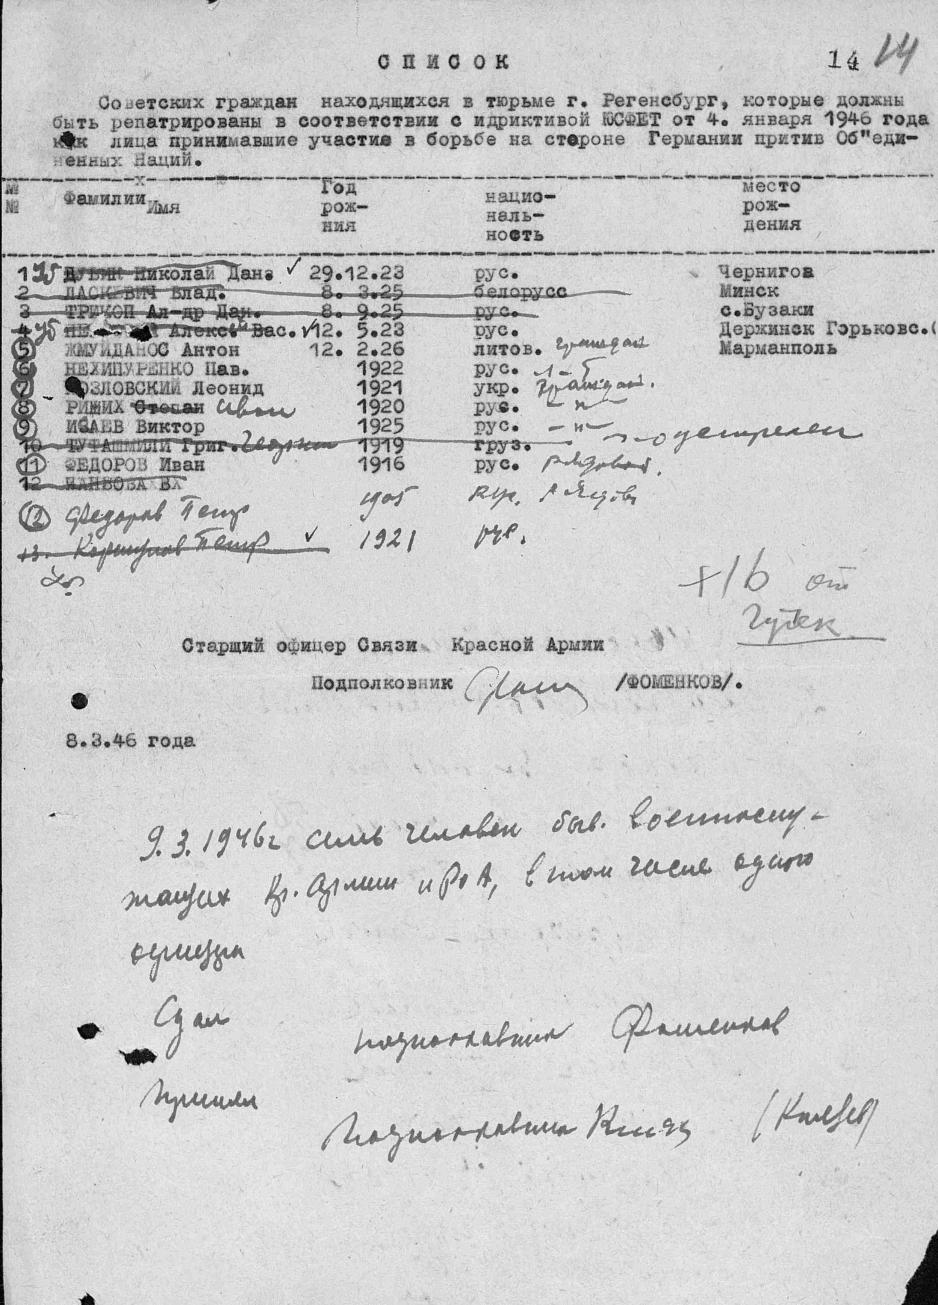 СПИСОК 14 14
Советских граждан находящихся в тюрьме г. Регенсбург, которые должны
быть репатрированы в соответствии с идриктивой ЮСФЕТ от 4. января 1946 года
как лица принимавшие участие в борьбе на стороне Германии притив Об"еди-
ненных Наций.
№ Фамилии Год место
№ Имя рож- нацио- рож-
ния наль- дения
ность
1 Николай Дан. 29.12.23 рус. Чернигов
2 ЛАСКЕВИЧ Влад. 8. 3.25 белорусс Минск
3 Ал-др Дан. 8. 9.25 рус. с.Бузаки
4 Алекс Вас. 12. 5.23 рус. Держинск Горьковс.(
5 ЖМУЙДАНОС Антон 12. 2.26 литов. Марманполь
6 НЕХИПУРЕНКО Пав. 1922 рус.
7 КОЗЛОВСКИЙ Леонид 1921 укр.
8 РИЖИХ Степан Иван 1920 рус. -"-
9 ИСАЕВ Виктор 1925 рус. -"-
10 ТУФАШМИЛИ Григ. 1919 груз.
11 ФЕДОРОВ Иван 1916 рус. рядовой.
12
12 Федоров Петр 1905 рядов
13. Петр 1921 рус.
+16 от
Старший офицер Связи Красной Армии
Подполковник /ФОМЕНКОВ/.
8.3.46 года
9.3.1946г семь человек быв. военнослу-
жащих Кр. Армии и РОА, в том числе одного
офицера
Сдал подполковник Фоменков
Принял
Подполковник (Князев)